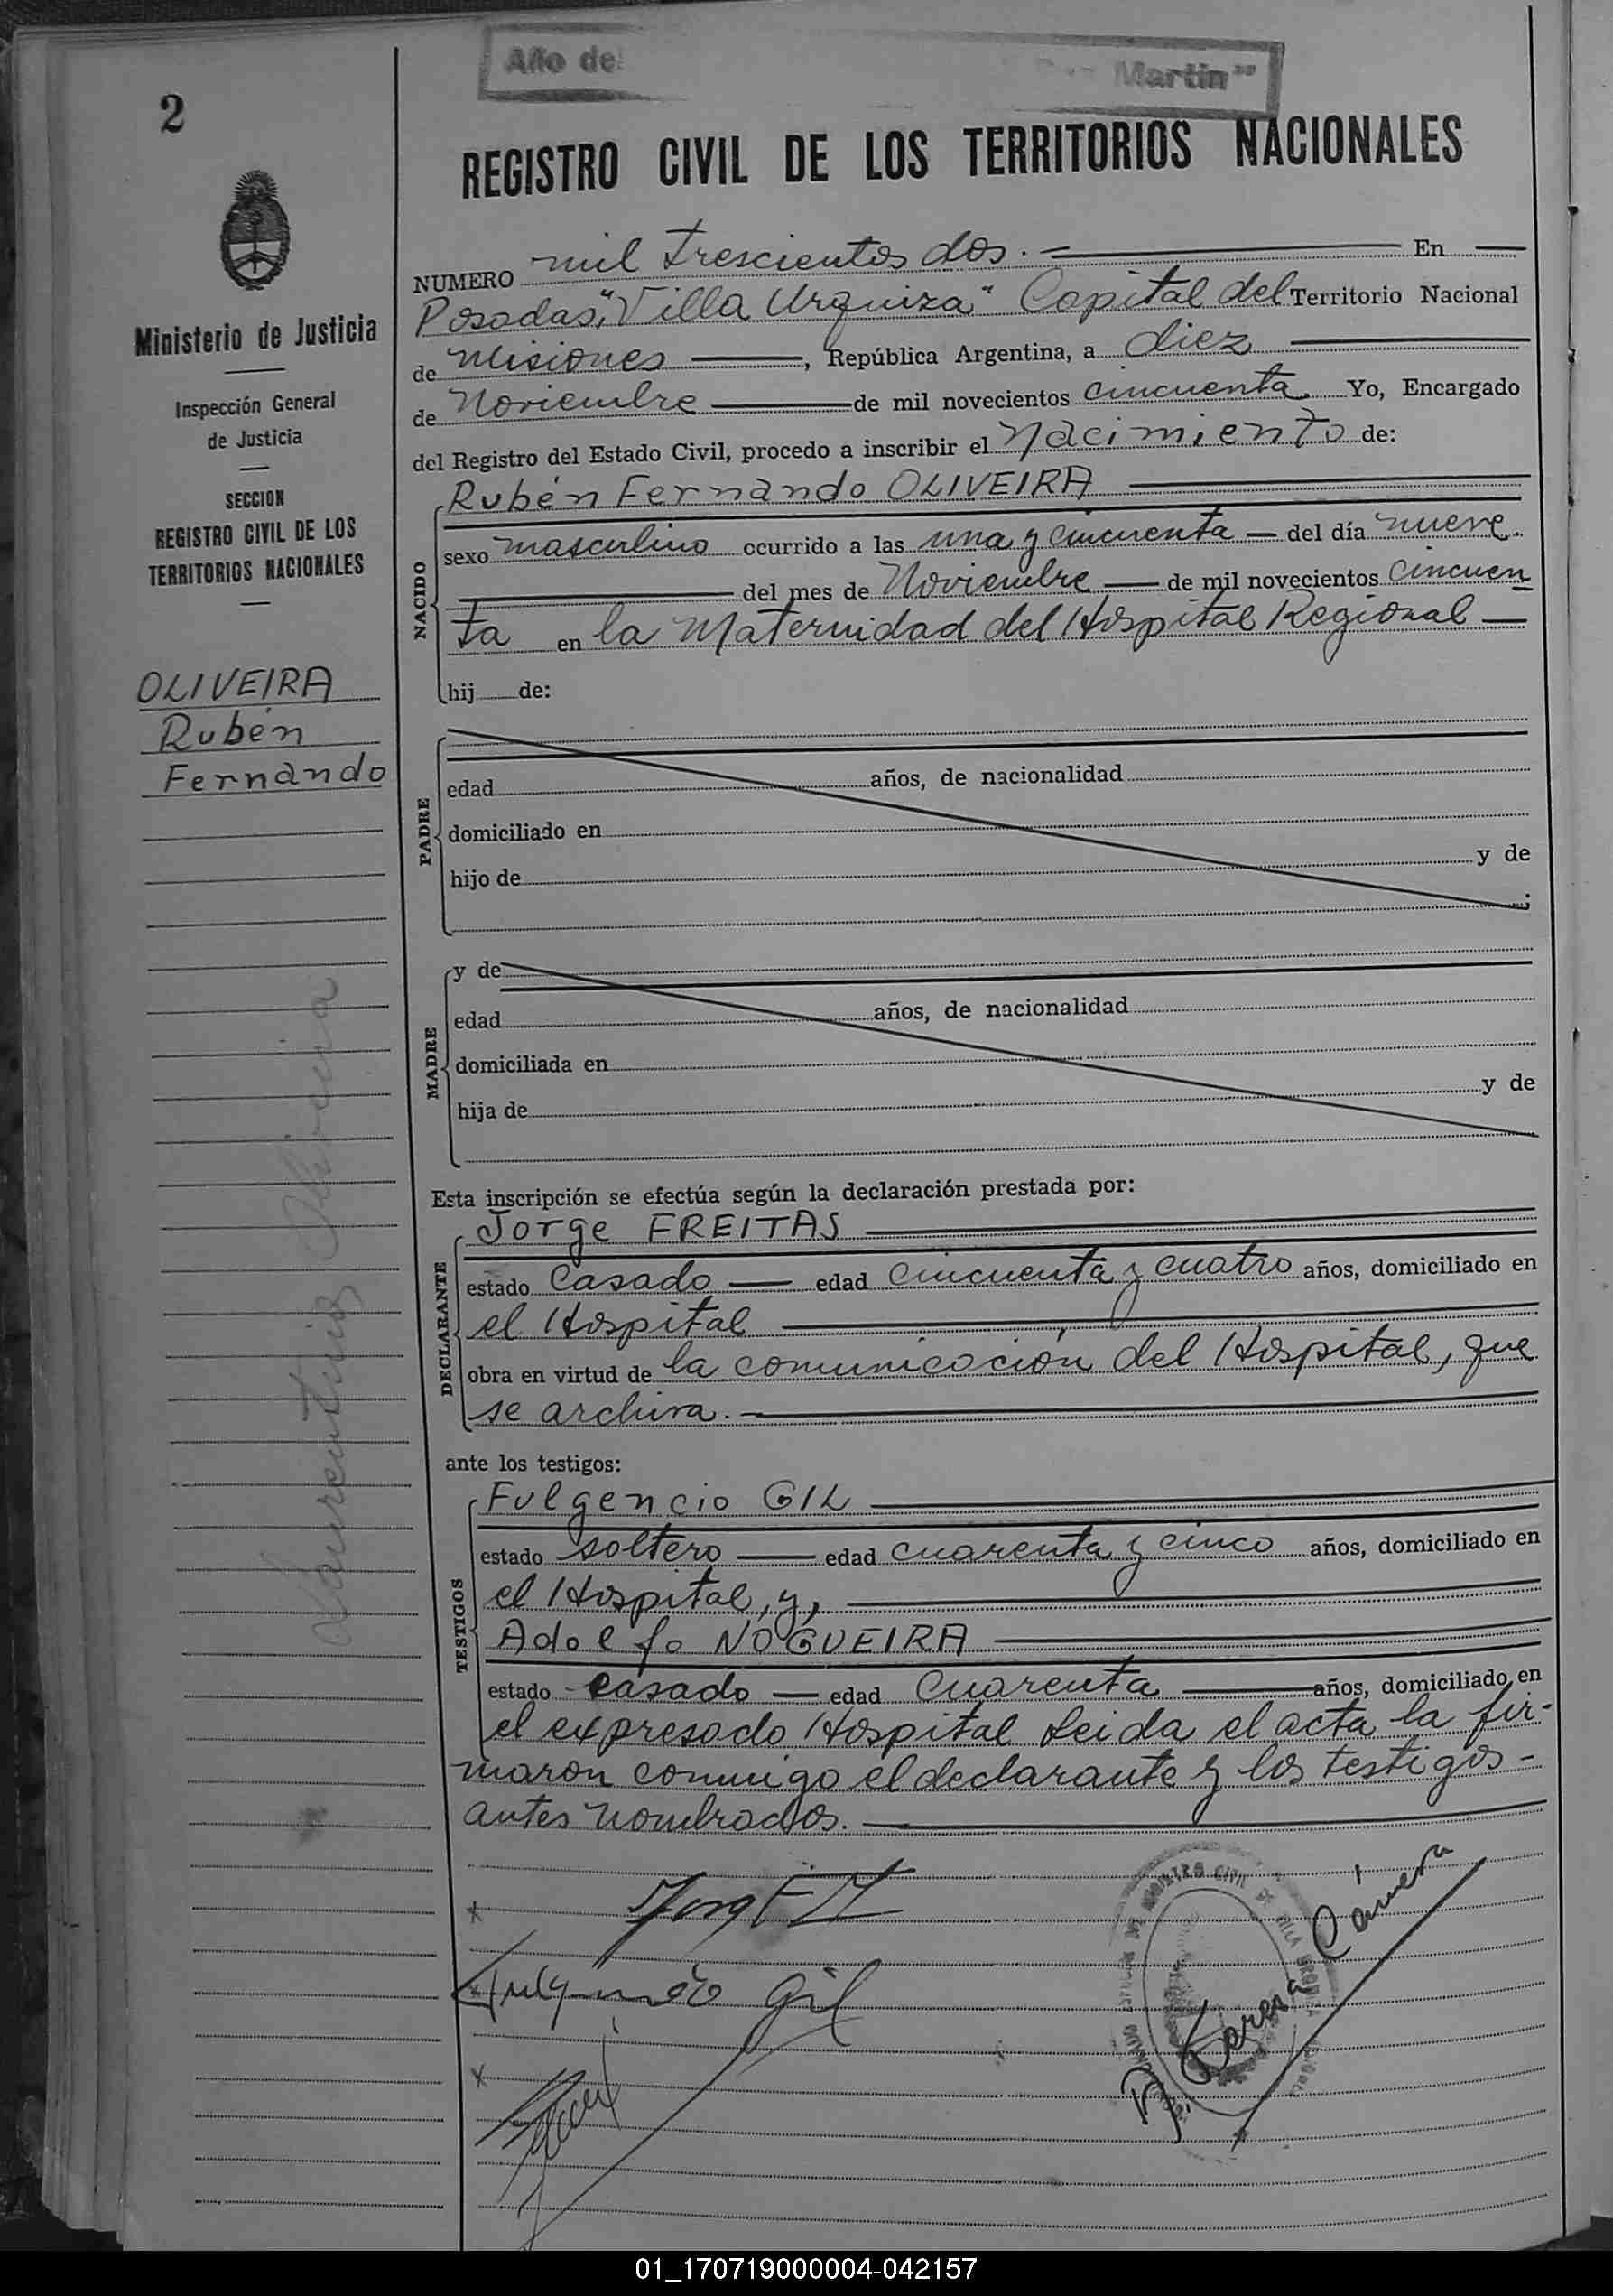 Año de
Martin"
2
REGISTRO CIVIL DE LOS TERRITORIOS NACIONALES
Ministerio de Justicia
Inspección General
de Justicia
SECCION
REGISTRO CIVIL DE LOS
TERRITORIOS NACIONALES
OLIVEIRA
Rubén
Fernando
Oliveira
NUMERO mil trescientos dos.— En
Posadas, "Villa Urquiza" Capital del Territorio Nacional
de Misiones —, República Argentina, a diez
de Noviembre — de mil novecientos cincuenta. Yo, Encargado
del Registro del Estado Civil, procedo a inscribir el Nacimiento de:
NACIDO
Rubén Fernando OLIVEIRA
sexo masculino ocurrido a las una y cincuenta — del día nueve.
— del mes de Noviembre — de mil novecientos cincuen
ta en la Maternidad del Hospital Regional —
hij de:
PADRE
edad años, de nacionalidad
domiciliado en
hijo de y de
;
MADRE
y de
edad años, de nacionalidad
domiciliada en
hija de y de
Esta inscripción se efectúa según la declaración prestada por:
DECLARANTE
Jorge FREITAS
estado casado — edad cincuenta y cuatro años, domiciliado en
el Hospital
obra en virtud de la comunicación del Hospital, que
se archiva.—
ante los testigos:
TESTIGOS
Fulgencio GIL
estado soltero — edad cuarenta y cinco años, domiciliado en
el Hospital, y,
Adolfo NOGUEIRA
estado casado — edad cuarenta — años, domiciliado en
el expresado Hospital Leida el acta la fir-
maron conmigo el declarante y los testigos -
antes nombrados.—
Gil
Teresa
01_170719000004-042157